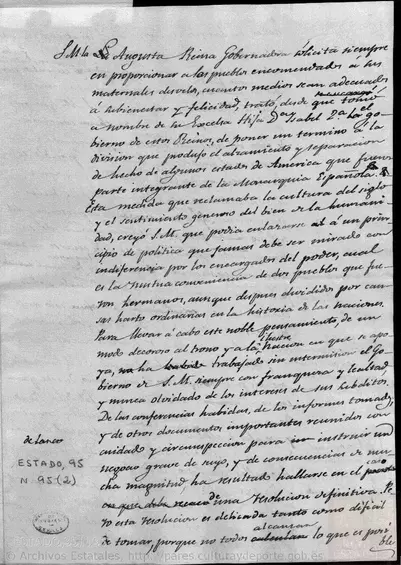 S.M. la Augusta Reina Gobernadora solicita siempre
en proporcionar a los pueblos encomendados á sus
maternales desvelos, cuantos medios sean adecuados
á su bienestar y felicidad, trató, desde que
á nombre de su Excelsa Hija Dª Isabel 2ª el go-
bierno de estos Reinos, de poner un termino á la
division que produjo el alzamiento y separacion
de hecho de algunos estados de America que fueron
parte integrante de la Monarquia Española.
Esta medida que reclamaba la cultura del siglo
y el sentimiento generoso del bien de la humani-
dad, creyó S.M. que podria enlazarse á un prin-
cipio de politica que jamas debe ser mirado con
indiferencia por los encargados del poder, cual
es la mutua conveniencia de dos pueblos que fue-
ron hermanos, aunque despues divididos por cau-
sas harto ordinarias en la historia de las naciones.
Para llevar á cabo este noble pensamiento, de un
modo decoroso al trono y a la ilustre nacion en que se apo-
ya, ha trabajado sin intermision el Go-
bierno de S.M. siempre con franqueza y lealtad,
y nunca olvidado de los intereses de sus subditos.
De las conferencias habidas, de los informes tomados,
y de otros documentos importantes reunidos con
cuidado y circunspeccion para instruir un
negocio grave de suyo, y de consecuencias de mu-
cha magnitud ha resultado hallarse en el
una resolucion definitiva. Pe-
ro esta resolucion es delicada tanto como dificil
de tomar, porque no todos alcanzan lo que es posi-
ble
ESTADO, 95
N. 95 (2)
© Archivos Estatales, http://pares.culturaydeporte.gob.es